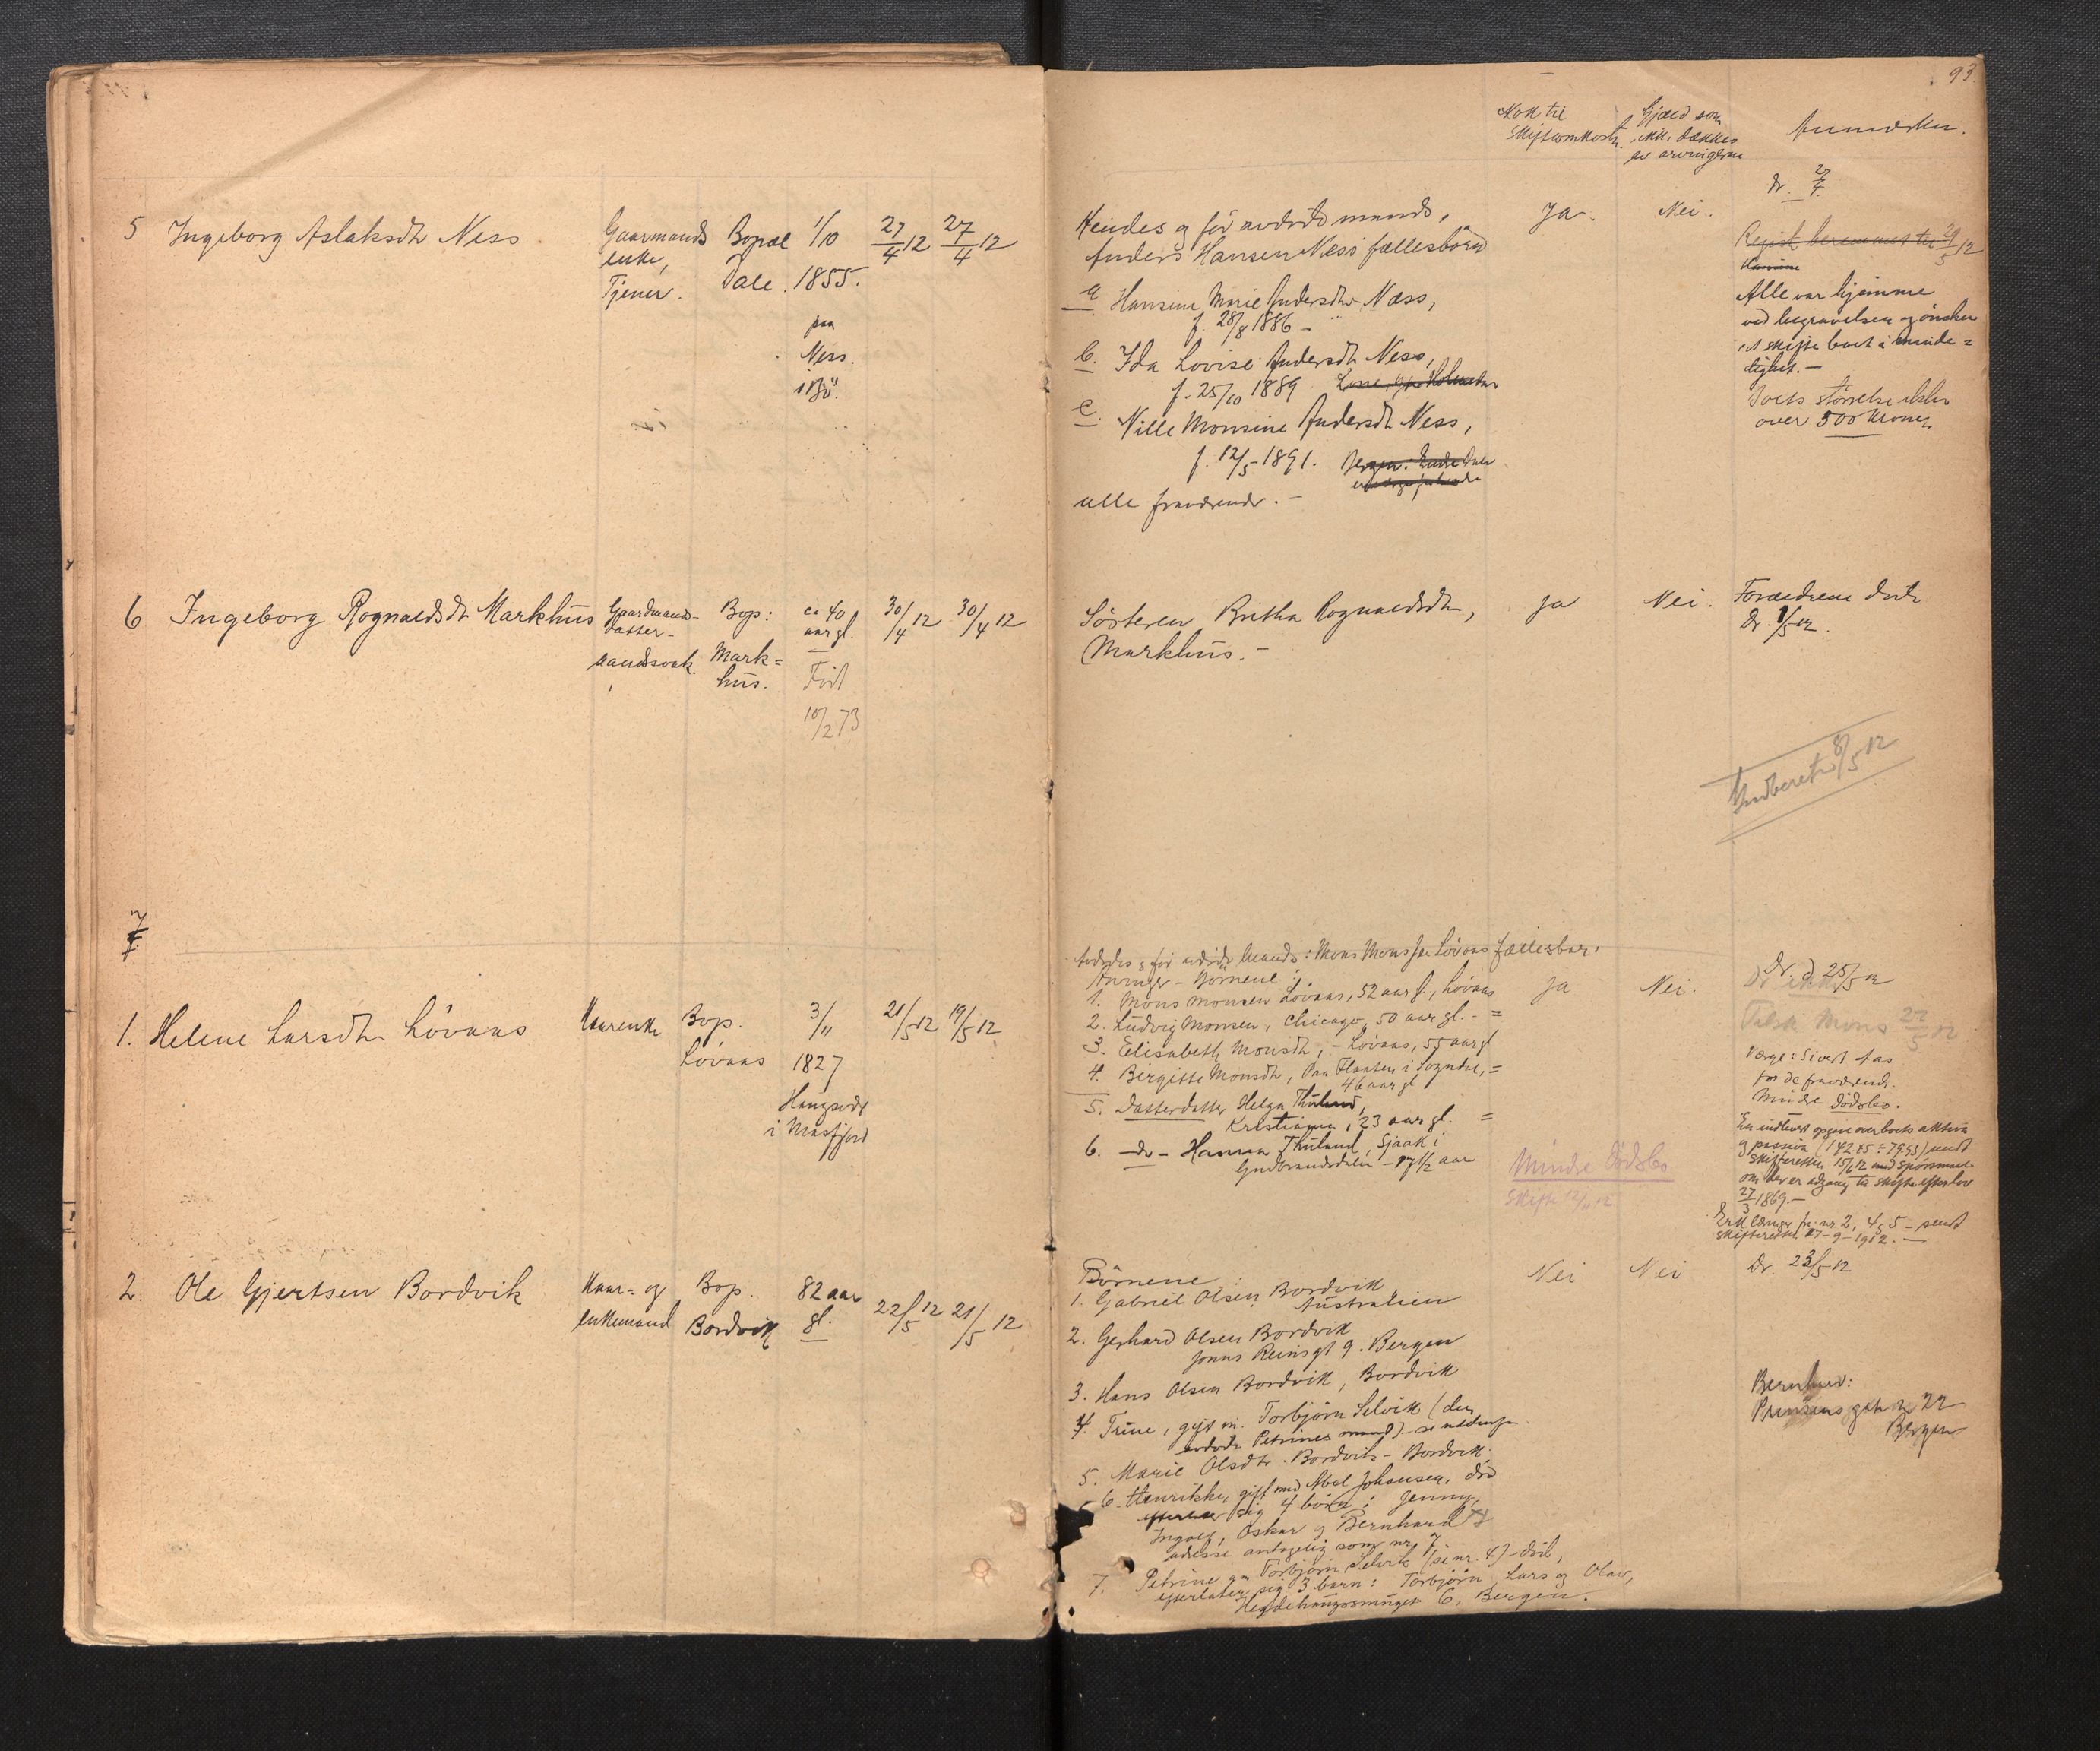 93
Nok til
skifteomkostn.
Gjæld som
ikke dækkes
av arvingerne
Anmerkn.
5 Ingeborg Aslaksdtr Ness
Gaarmands
enke,
Tjener.
Bopæl
Dale.
1/10
1855.
paa
Ness.
i Bö.
27/4 12 27/4 12
Hendes og før avdøde mands,
Anders Hansen Ness fællesbörn
a Hansine Marie Andersdtr Næss,
f. 28/8 1886 -
b. Ida Lovise Andersdtr Ness,
f. 25/10 1889
c. Nille Monsine Andersdtr Ness,
f. 12/5 1891.
alle fraværende. -
Ja.
Nei.
Dr. 27/4.
Regist. berammet til 29/5 12
Alle var hjemme
ved begravelsen og ønsker
at skifte boet i minde=
lighet. -
Boets størrelse
over 500 kroner
6 Ingeborg Rognaldsdtr Markhus
Gaardmands-
datter -
sandssvak.
Bop:
Mark=
hus.
ca 40
aar gl.
Født
10/2 73
30/4 12 30/4 12
Søsteren Britha Rognaldsdtr,
Markhus. -
Ja
Nei.
Forældrene døde
Dr. 1/5 12.
Indberetn 8/5 12
7
1. Helene Larsdtr Lövaas
Kaarenke
Bop.
Lövaas
3/11
1827
Haugsvær
i Masfjord
21/5 12 19/5 12
Avdødes og før avdøde mands: Mons Monssen Lövaas fællesbar:
Arvinger - Börnene:
1. Mons Monsen Lövaas, 52 aar gl., Lövaas
2. Ludvig Monsen, Chicago, 50 aar gl. - =
3. Elisabeth Monsdtr, - Lövaas, 55 aar gl
4. Birgitte Monsdtr, Paa Flaaten i Sogndal, =
46 aar gl
5. Datterdatter Helga Thuland,
Kristiania, 23 aar gl. =
6. - do - Hanna Thuland, Sjaak i
Gudbrandsdalen - 17 1/2 aar
Ja
Nei.
Mindre Dödsbo
Skifte 12/11 12
Dr. d. 25/5 12
Mons 22/5 12
Værge: Sivert Aas
for de fraværende.
Mindre Dødsbo.
En indlevert opgave over boets aktiva
og passiva (142.85 ÷ 79.95) sendt
skifteretten 15/6 12 med spørsmaal
om der er adgang til skifte efter lov
27/3 1869. -
Erklæringer fra nr 2, 4 og 5 - sendt
skifteretten 27 - 9 - 1912. -
2. Ole Gjertsen Bordvik
Kaar- og
enkemand
Bop.
Bordvik
82 aar
gl.
22/5 12 21/5 12
Börnene:
1. Gabriel Olsen Bordvik
Australien
2. Gerhard Olsen Bordvik
Jonas Reinsgt 9. Bergen
3. Hans Olsen Bordvik, Bordvik
4. Trine, gift m. Torbjørn Selvik (den
avdøde Petrines mand) - se nedenfor
5. Marie Olsdtr. Bordvik - Bordvik.
6. Henrikke, gift med Abel Johansen, död
efterlater sig 4 börn: Jenny,
Ingolf, Oskar og Bernhard
adresse antagelig som nr. 7
7. Petrine gm Torbjørn Selvik (se nr. 4) - död,
efterlater sig 3 barn: Torbjörn, Lars og Olav,
Hegdehaugssmuget 6, Bergen.
Nei
Nei
Dr. 23/5 12
Bernhard:
Prinsens gate 22
Bergen